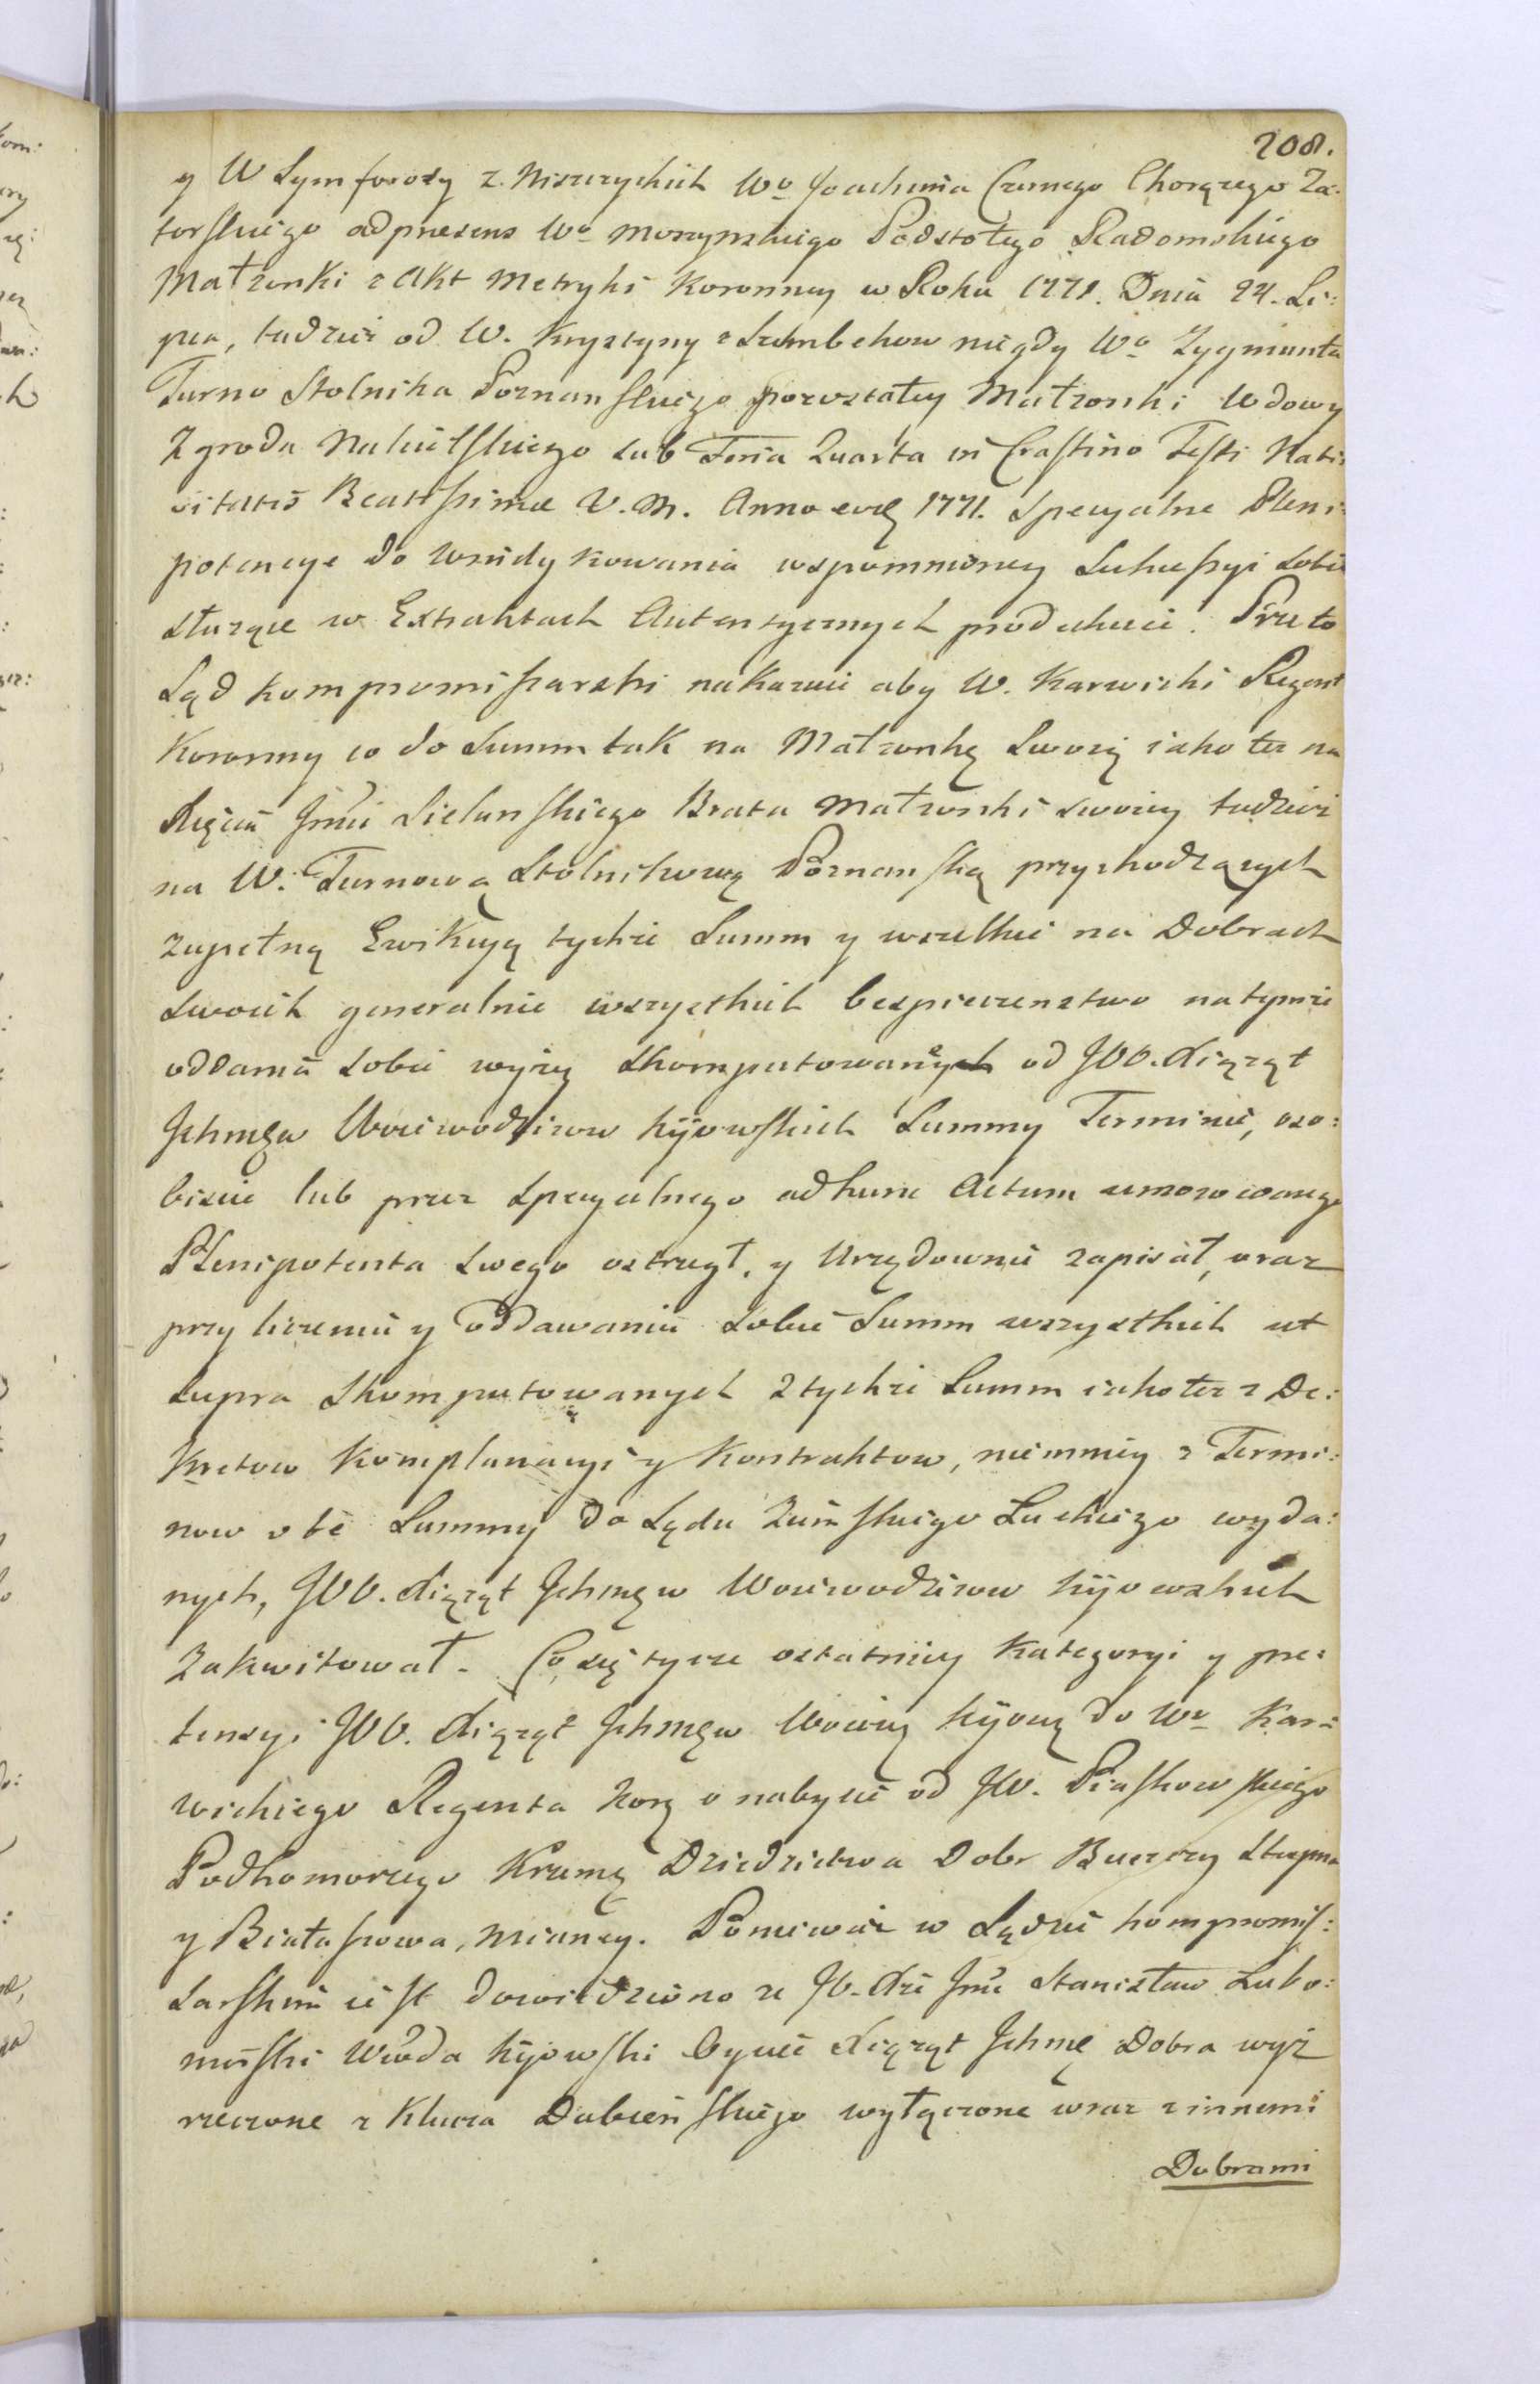 208.
y W Symforozy z Niszczyckich Wo Joachima Czarnego Chorążego Za:
torskiego ad presens Wo Moszynskiego Podstolego Radomskiego
Małżonki z Akt Metryki Koronney w Roku 1771. Dnia 24. Li:
pca, tudzież od W. Krystyny z Szembekow niegdy Wo Zygmunta
Turno Stolnika Poznanskiego pozostałey Małżonki Wdowy
Z grodu Nakielskiego sub Feria Quarta in Crastino Festi Nati:
vitatis Beatissimæ V. M. Anno eodę 1771. Specyalne Pleni:
potencye do windykowania wspomnioney Sukcessyi sobie
służące w Extraktach Autentycznych produkuie. Przeto
Sąd kompromissarski nakazuie aby W. Karwicki Regent
Koronny co do Summ tak na Małżonkę Swoię iako też na
Xięcia Jmci Sielunskiego Brata Małżonki swoiey tudzież
na W. Turnową Stolnikową Poznanską przychodzących
zupełną Ewikcyą tychże Summ y wszelkie na Dobrach
Swoich generalnie wszystkich bespieczenstwo na tymże
oddania sobie wyżey skomputowaney od JOO. Xiążąt
Jchmęw Woiewodzicow kijowskich Summy Terminie, oso:
biscie lub przez specyalnego ad hunc Actum umocowanego
Plenipotenta swego ostrzegł, y Urzędownie zapisał, oraz
przy liczeniu y oddawaniu sobie Summ wszystkich ut
supra skomputowanych z tychże Summ iako też z De:
kretow komplanacyi y Kontraktow, niemniey z Termi:
now o te Summy do Sądu Ziemskiego Łuckiego wyda:
nych, JOO. Xiążąt Jchmęw Woiewodzicow kijowskich
zakwitował. Co się tycze ostatniey kategoryi y pre:
tensyi JOO. Xiążąt Jchmęw Wowicę kijowę do Wo Kar:
wickiego Regenta korę o nabycie od JW. Piaskowskiego
Podkomorzego Krzemę Dziedzictwa Dobr Buczczy Stupna
y Białaszowa, mianey. Ponieważ w Sądzie kompromis:
sarskim iest dowiedziono że JO. Xże Jmć Stanisław Lubo:
mirski Wwoda kijowski Oyciec Xiążąt Jchmę Dobra wyż
rzeczone z Klucza Dubienskiego wyłączone wraz z innemi
Dobrami